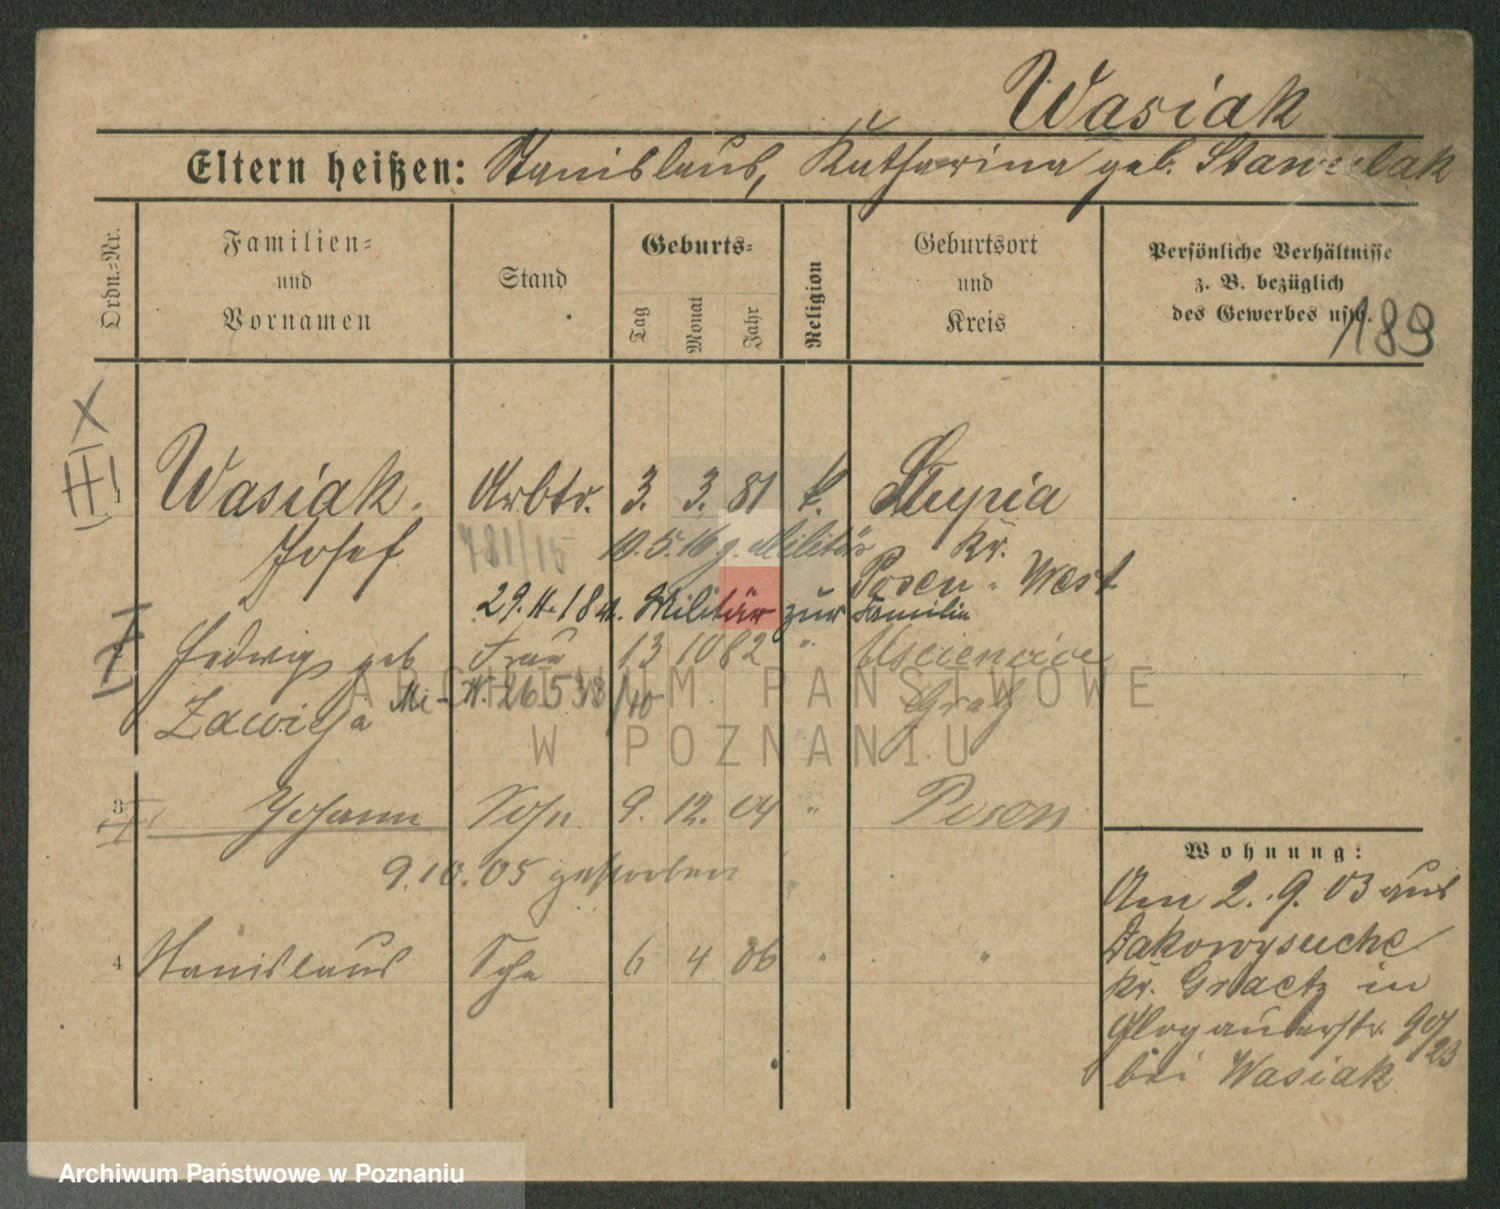 Wasiak
Eltern heißen: Stanislaus, Katharina geb.
Ordn.=Nr.
Familien=
und
Vornamen
Stand
Geburts=
Tag
Monat
Jahr
Religion
Geburtsort
und
Kreis
Persönliche Verhältnisse
z. B. bezüglich
des Gewerbes usw.
189
X
Wasiak. Arbtr. 3. 3. 81 k. Slupia
Josef 781/15 10.5.16 z. Militär Kr.
Posen-West
29.11.18 v. Militär zur Familie
Hedwig geb Frau 13 10 82 "
Zawieja Grätz
3 Johann Sohn 9. 12. 04 " Posen
9.10.05 gestorben
4 Stanislaus Sohn 6 4 06 " "
Wohnung:
Am 2. 9. 03 aus
Dakowysuche
Kr. Graetz in
Glogauerstr. 90/
23
bei Wasiak
ARCHIWUM PAŃSTWOWE
W POZNANIU
Archiwum Państwowe w Poznaniu